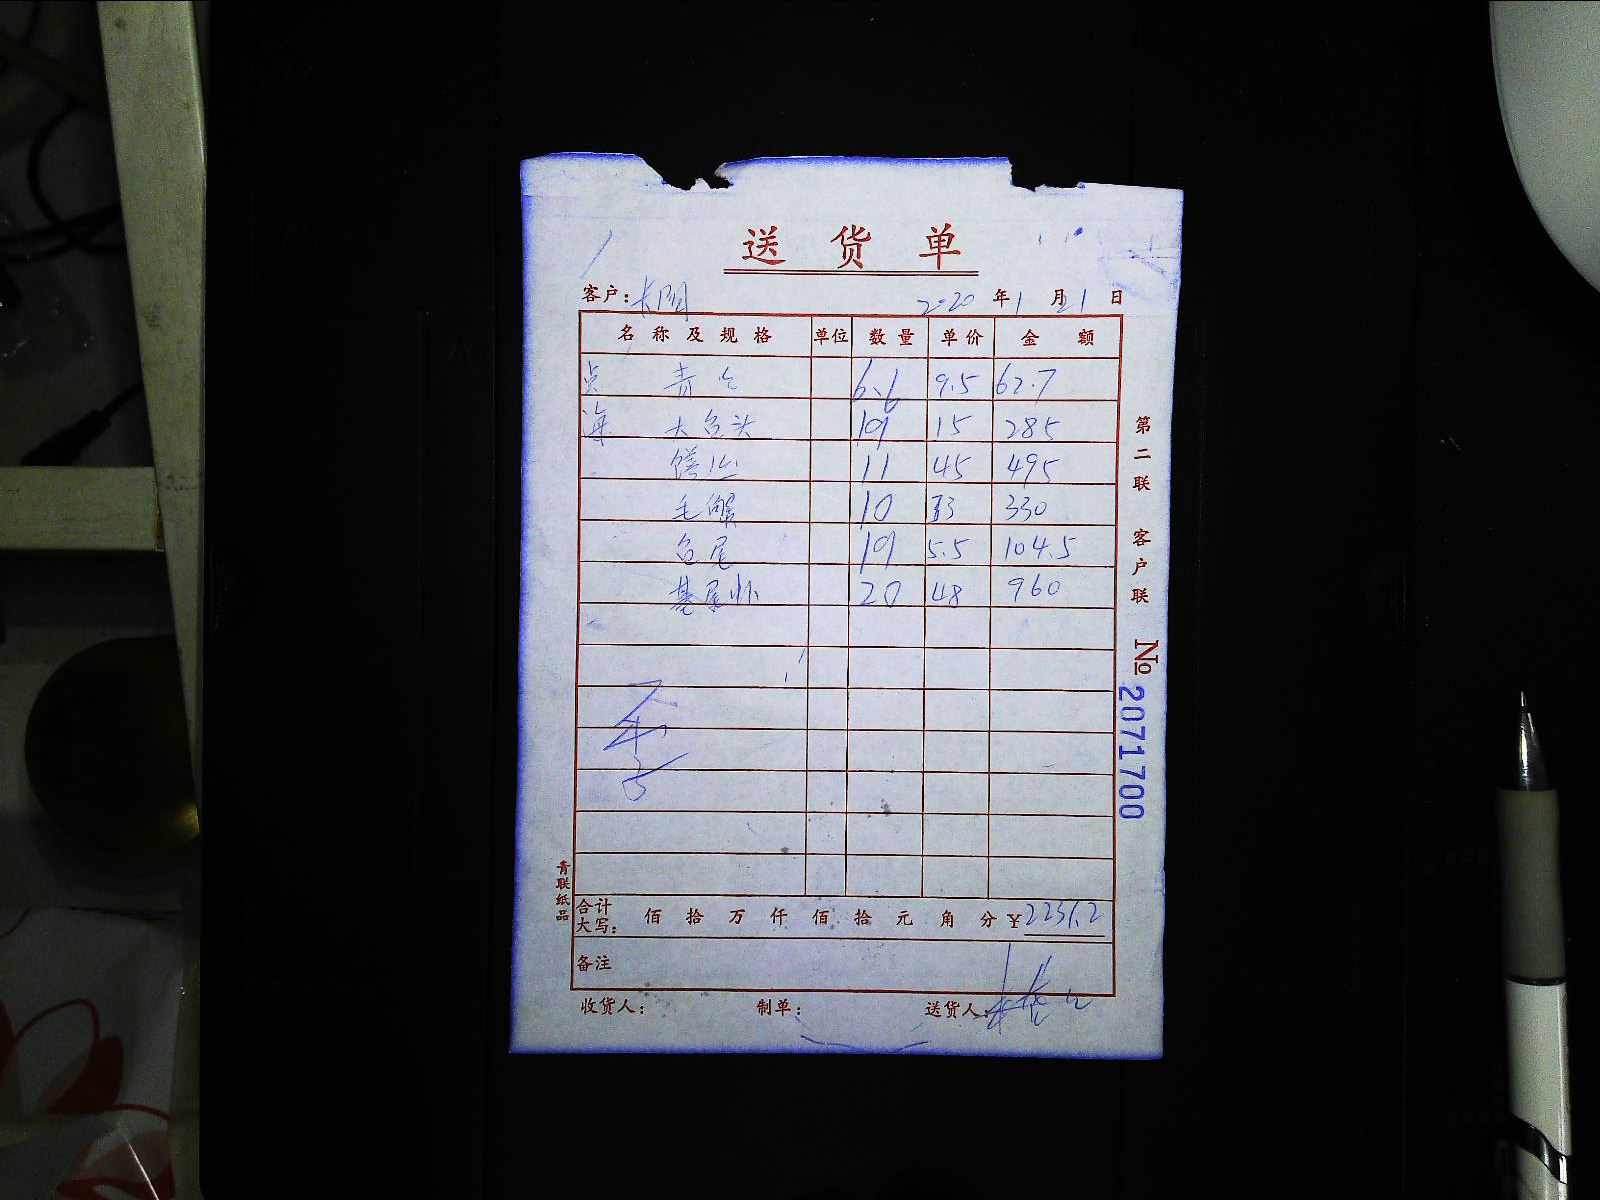 送 货 单
客户: 2020 年 1 月 21 日
名 称 及 规 格 单位 数 量 单 价 金 额
点 青 6.6 9.5 62.7
海 大鱼头 19 15 285
11 45 495
毛蟹 10 33 330
鱼尾 19 5.5 104.5
基尾虾 20 48 960
合计大写: 佰 拾 万 仟 佰 拾 元 角 分 ¥2237.2
备注
收货人: 制单: 送货人:
第二联 客户联
№ 2071700
青联纸品